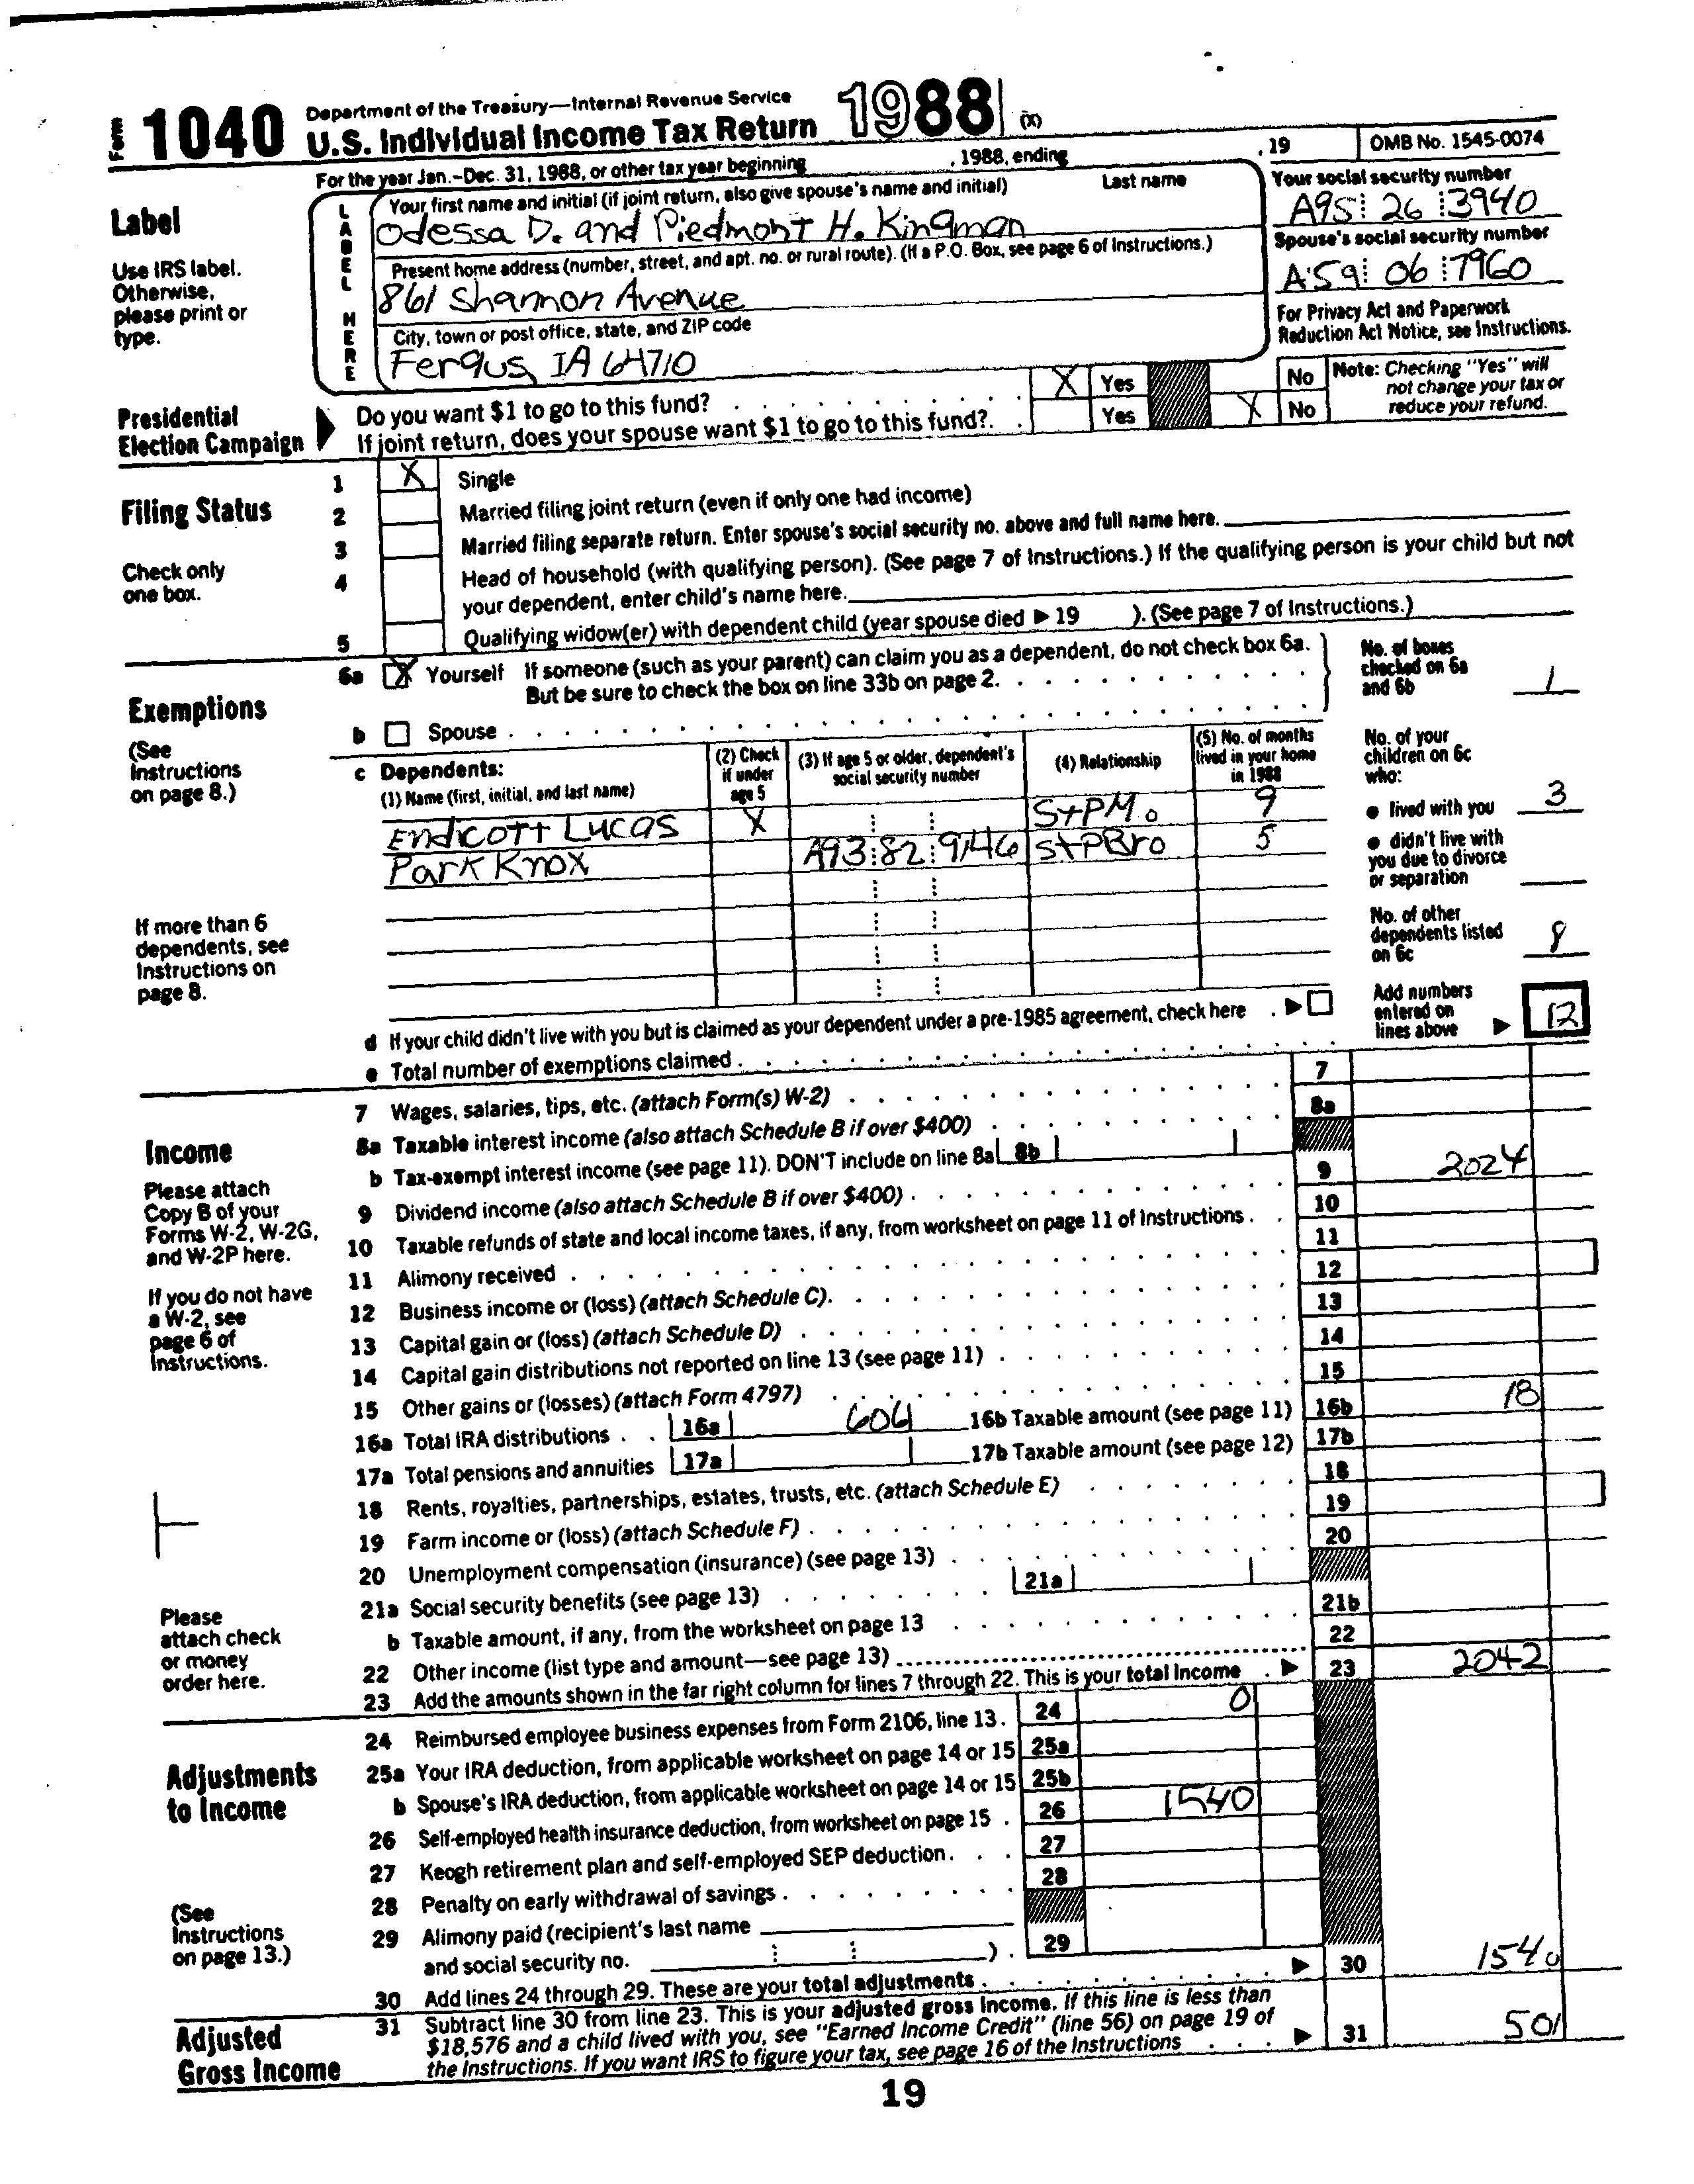 Form 1040 Department of the Treasury—Internal Revenue Service
U.S. Individual Income Tax Return 1988 (X)
For the year Jan.–Dec. 31, 1988, or other tax year beginning , 1988, ending , 19 OMB No. 1545-0074
Label
Use IRS label.
Otherwise,
please print or
type.
LABEL HERE
Your first name and initial (if joint return, also give spouse's name and initial) Last name
Odessa D. and Piedmont H. Kingman
Your social security number
A95 26 3940
Present home address (number, street, and apt. no. or rural route). (If a P.O. Box, see page 6 of Instructions.)
861 Shannon Avenue
Spouse's social security number
A59 06 7960
City, town or post office, state, and ZIP code
Fergus, IA 64710
For Privacy Act and Paperwork
Reduction Act Notice, see Instructions.
Presidential
Election Campaign
Do you want $1 to go to this fund? X Yes No
If joint return, does your spouse want $1 to go to this fund? Yes X No
Note: Checking "Yes" will
not change your tax or
reduce your refund.
Filing Status
Check only
one box.
1 X Single
2 Married filing joint return (even if only one had income)
3 Married filing separate return. Enter spouse's social security no. above and full name here.
4 Head of household (with qualifying person). (See page 7 of Instructions.) If the qualifying person is your child but not
your dependent, enter child's name here.
5 Qualifying widow(er) with dependent child (year spouse died ▶ 19 ). (See page 7 of Instructions.)
Exemptions
(See
Instructions
on page 8.)
If more than 6
dependents, see
Instructions on
page 8.
6a X Yourself If someone (such as your parent) can claim you as a dependent, do not check box 6a.
But be sure to check the box on line 33b on page 2.
b Spouse
No. of boxes
checked on 6a
and 6b 1
c Dependents:
(1) Name (first, initial, and last name)
(2) Check
if under
age 5
(3) If age 5 or older, dependent's
social security number
(4) Relationship
(5) No. of months
lived in your home
in 1988
Endicott Lucas X StPMo 9
Park Knox A93 82 9146 StPBro 5
No. of your
children on 6c
who:
● lived with you 3
● didn't live with
you due to divorce
or separation
No. of other
dependents listed
on 6c 8
d If your child didn't live with you but is claimed as your dependent under a pre-1985 agreement, check here ▶
e Total number of exemptions claimed
Add numbers
entered on
lines above ▶ 12
Income
Please attach
Copy B of your
Forms W-2, W-2G,
and W-2P here.
If you do not have
a W-2, see
page 6 of
Instructions.
Please
attach check
or money
order here.
7 Wages, salaries, tips, etc. (attach Form(s) W-2) 7
8a Taxable interest income (also attach Schedule B if over $400) 8a
b Tax-exempt interest income (see page 11). DON'T include on line 8a 8b
9 Dividend income (also attach Schedule B if over $400) 9 2024
10 Taxable refunds of state and local income taxes, if any, from worksheet on page 11 of Instructions 10
11 Alimony received 11
12 Business income or (loss) (attach Schedule C) 12
13 Capital gain or (loss) (attach Schedule D) 13
14 Capital gain distributions not reported on line 13 (see page 11) 14
15 Other gains or (losses) (attach Form 4797) 15
16a Total IRA distributions 16a 604 16b Taxable amount (see page 11) 16b 18
17a Total pensions and annuities 17a 17b Taxable amount (see page 12) 17b
18 Rents, royalties, partnerships, estates, trusts, etc. (attach Schedule E) 18
19 Farm income or (loss) (attach Schedule F) 19
20 Unemployment compensation (insurance) (see page 13) 20
21a Social security benefits (see page 13) 21a
b Taxable amount, if any, from the worksheet on page 13 21b
22 Other income (list type and amount—see page 13) 22
23 Add the amounts shown in the far right column for lines 7 through 22. This is your total income ▶ 23 2042
Adjustments
to Income
(See
Instructions
on page 13.)
24 Reimbursed employee business expenses from Form 2106, line 13. 24 0
25a Your IRA deduction, from applicable worksheet on page 14 or 15 25a
b Spouse's IRA deduction, from applicable worksheet on page 14 or 15 25b
26 Self-employed health insurance deduction, from worksheet on page 15 26 1540
27 Keogh retirement plan and self-employed SEP deduction 27
28 Penalty on early withdrawal of savings 28
29 Alimony paid (recipient's last name
and social security no. ) 29
30 Add lines 24 through 29. These are your total adjustments ▶ 30 1540
Adjusted
Gross Income
31 Subtract line 30 from line 23. This is your adjusted gross income. If this line is less than
$18,576 and a child lived with you, see "Earned Income Credit" (line 56) on page 19 of
the Instructions. If you want IRS to figure your tax, see page 16 of the Instructions ▶ 31 501
19